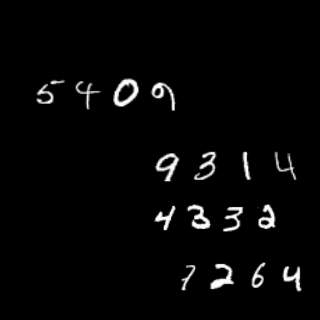 5409
9314
4332
7264